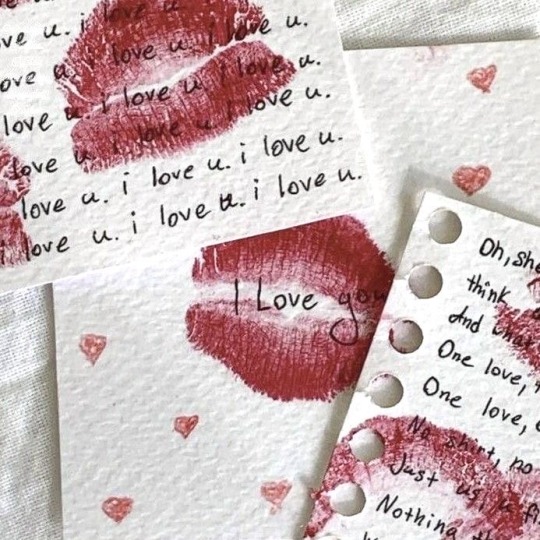 ve u. i love u
ove u. i love u. i love u.
love u. i love u. i love u.
love u. i love u. i love u.
love u. i love u. i love u.
i love u. i love u. i love u.
I Love you
Oh, she
think
And what
One love,
One love,
No shirt, no
Just us, u
Nothing